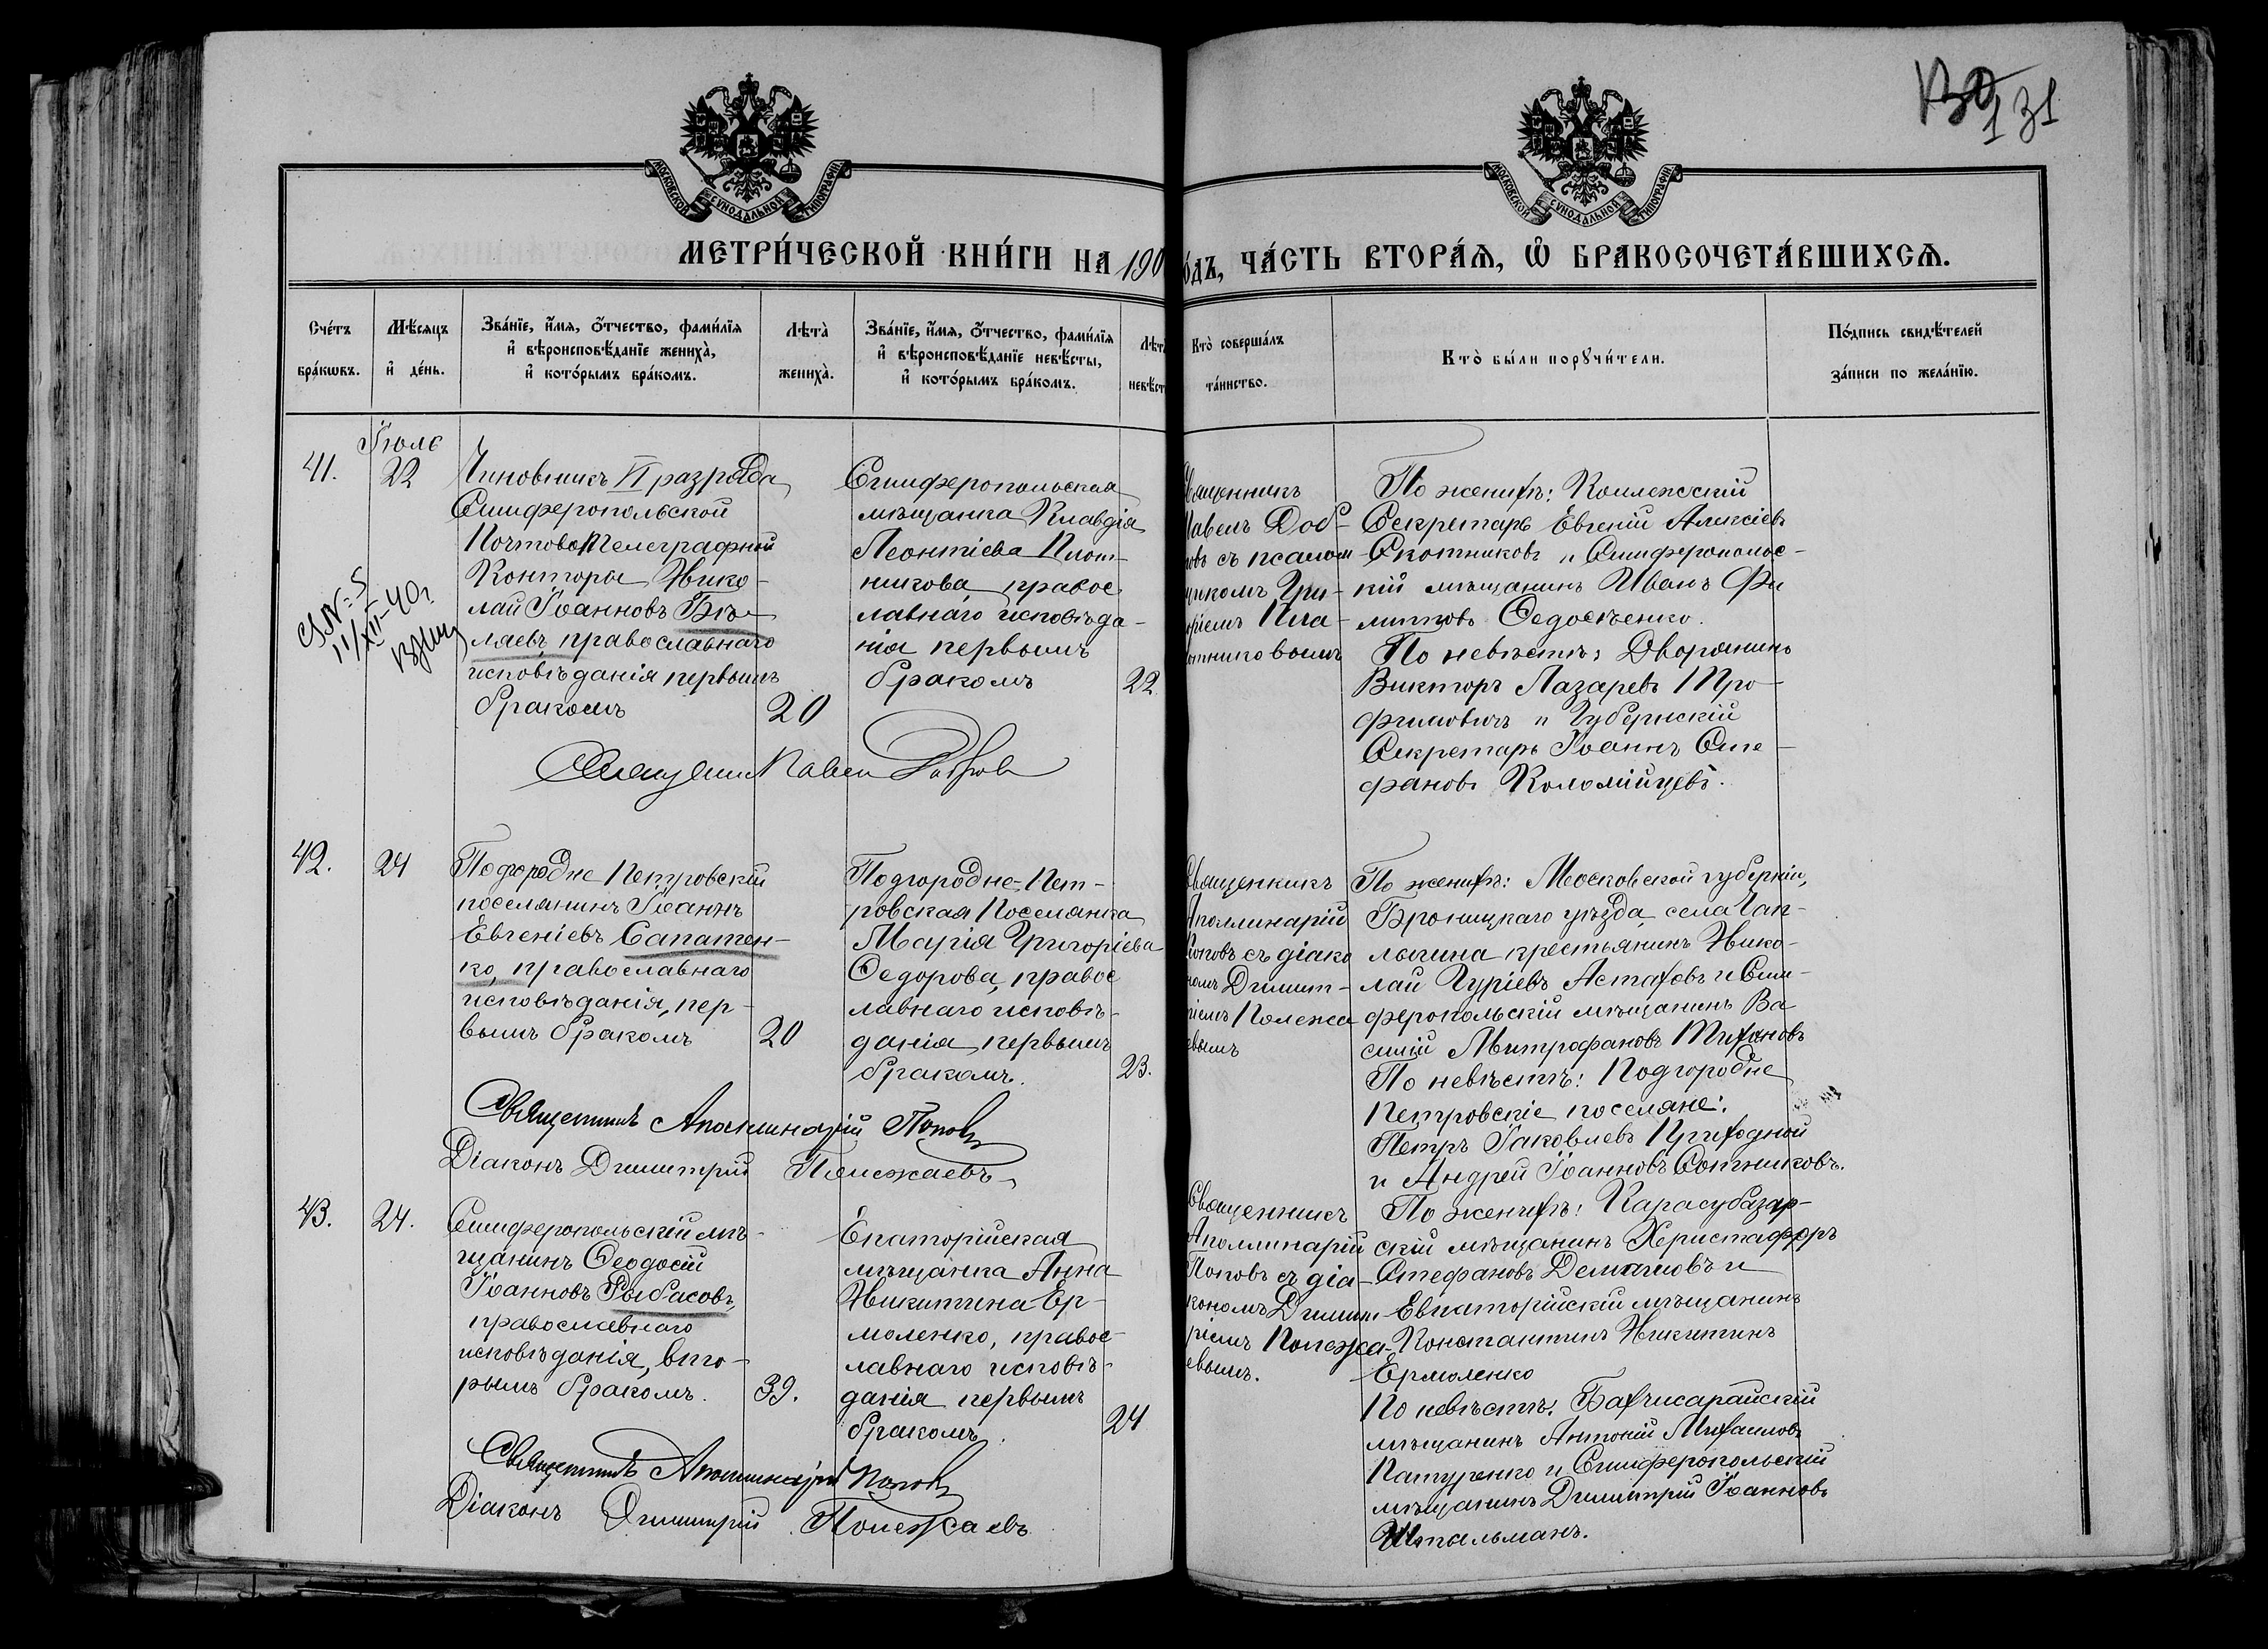 130
131
МОСКОВСКОЙ СѴНОДАЛЬНОЙ ТИПОГРАФІИ
МОСКОВСКОЙ СѴНОДАЛЬНОЙ ТИПОГРАФІИ
МЕТРИ́ЧЕСКОЙ КНИ́ГИ НА 190
О́ДЪ, ЧА́СТЬ ВТОРА́Ѧ, Ѡ҆ БРАКОСОЧЕТА́ВШИХСѦ.
Сче́тъ бра́кѡвъ.
Мѣ́сяцъ и҆ де́нь.
Зва́нїе, и҆́мя, ѻ҆́тчество, фами́лїя
и҆ вѣроисповѣ́данїе жениха̀,
и҆ кото́рымъ бра́комъ.
Лѣта̀ жениха̀.
Зва́нїе, и҆́мя, ѻ҆́тчество, фами́лїя
и҆ вѣроисповѣ́данїе невѣ́сты,
и҆ кото́рымъ бра́комъ.
Лѣт невѣст
Кто̀ соверша́лъ та́инство.
Кто̀ бы́ли порꙋчи́тели.
По́дпись свидѣ́телей за́писи по жела́нїю.
41.
Іюль
22
11/XII-40г
Чиновникъ VI разряда
Симферопольской
Почтово Телеграфной
Конторы Нико-
лай Іоанновъ Бѣ-
ляевъ, православнаго
исповѣданія первымъ
бракомъ
20
Симферопольская
мѣщанка Клавдія
Леонтіева Плот-
никова, правос
лавнаго исповѣда-
нія первымъ
бракомъ
22
вященникъ
Павелъ Доб-
ровъ съ псалом
щикомъ Гри-
оріемъ Пла-
тниковымъ
По женихѣ: Коллежскій
Секретарь Евгеній Алексіевъ
Скотниковъ и Симферопольс-
кій мѣщанинъ Иванъ Фи
липповъ Федосѣенко.
По невѣстѣ: Дворянинъ
Викторъ Лазаревъ Тро-
фимовичъ и Губернскій
Секретарь Іоаннъ Сте-
фановъ Коломійцевъ.
Священникъ Павелъ Добровъ
42.
24
Подгородне Петровскій
поселянинъ Іоаннъ
Евгеніевъ Сапатен-
ко, православнаго
исповѣданія, пер-
вымъ бракомъ
20
Подгородне-Пет-
ровская Поселянка
Марія Григоріева
Федорова, правос
лавнаго исповѣ-
данія, первымъ
бракомъ.
23.
Священникъ
Аполлинарій
Поповъ съ діако
номъ Димит-
ріемъ Полежа
евымъ
По женихѣ: Московской губерніи,
Бронницкаго уѣзда, села Чап-
лыгина крестьянинъ Нико-
лай Гуріевъ Астаховъ и Сим-
феропольскій мѣщанинъ Ва
силій Митрофановъ Тихановъ
По невѣстѣ: Подгородне
Петровскіе поселяне:
Петръ Іаковлевъ Пригодной
и Андрей Іоанновъ Сотниковъ.
Священникъ Аполлинарій Поповъ
Діаконъ Димитрій Полежаевъ
43.
24.
Симферопольскій мѣ-
щанинъ Феодосій
Іоанновъ Рыбасовъ,
православнаго
исповѣданія, вто-
рымъ бракомъ.
39.
Евпаторійская
мѣщанка Анна
Никитина Ер-
моленко, правос-
лавнаго исповѣ-
данія первымъ
бракомъ.
24
Священникъ
Аполлинарій
Поповъ съ діа-
кономъ Димит
ріемъ Полежа-
евымъ.
По женихѣ: Карасубазар-
скій мѣщанинъ Христафоръ
Стефановъ и
Евпаторійскій мѣщанинъ
Константинъ Никитинъ
Ермоленко
По невѣстѣ: Бахчисарайскій
мѣщанинъ Антоній Михаиловъ
Патуренко и Симферопольскій
мѣщанинъ Димитрій Іоанновъ
Штальманъ.
Священникъ Аполлинарій Поповъ
Діаконъ Димитрій Полежаевъ